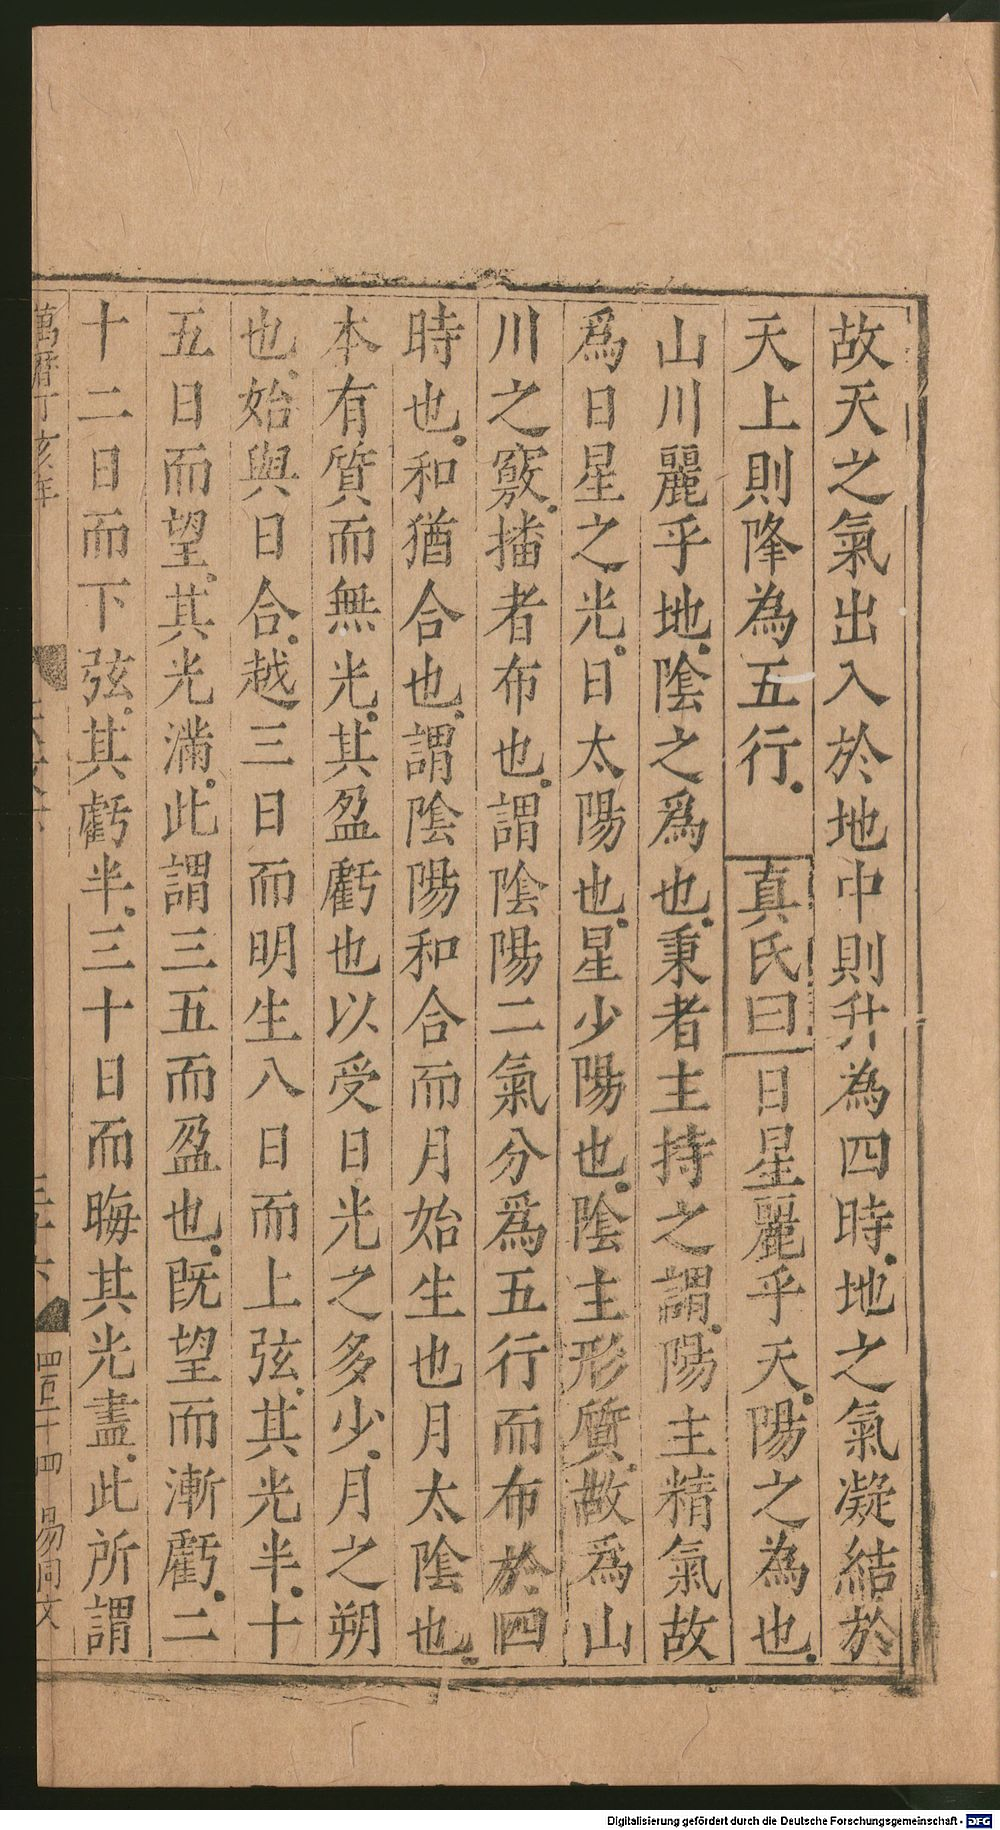 故天之氣出入於地中則升為四時。地之氣凝結於
天上則降為五行。真氏曰日星麗乎天。陽之為也。
山川麗乎地。陰之爲也。秉者主持之謂。陽主精氣故
爲日星之光。日太陽也。星少陽也。陰主形質。故爲山
川之竅。播者布也。謂陰陽二氣分爲五行而布於四
時也。和猶合也。謂陰陽和合而月始生也月太陰也。
本有質而無光。其盈虧也以受日光之多少。月之朔
也。始與日合。越三日而明生八日而上弦。其光半。十
五日而望。其光滿。此謂三五而盈也。既望而漸虧。二
十二日而下弦。其虧半。三十日而晦其光盡。此所謂
萬曆丁亥年
三十六
四百二十四 易同文
Digitalisierung gefördert durch die Deutsche Forschungsgemeinschaft - DFG